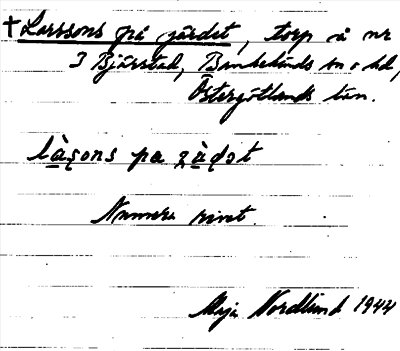 † Larssons på gärdet, torp å nr
3 Bjärstad, Bankekinds sn o hd,
Östergötlands län.
là̠s̨ons pa gà̠ḍət
Numera rivet.
Maja Nordlund 1944